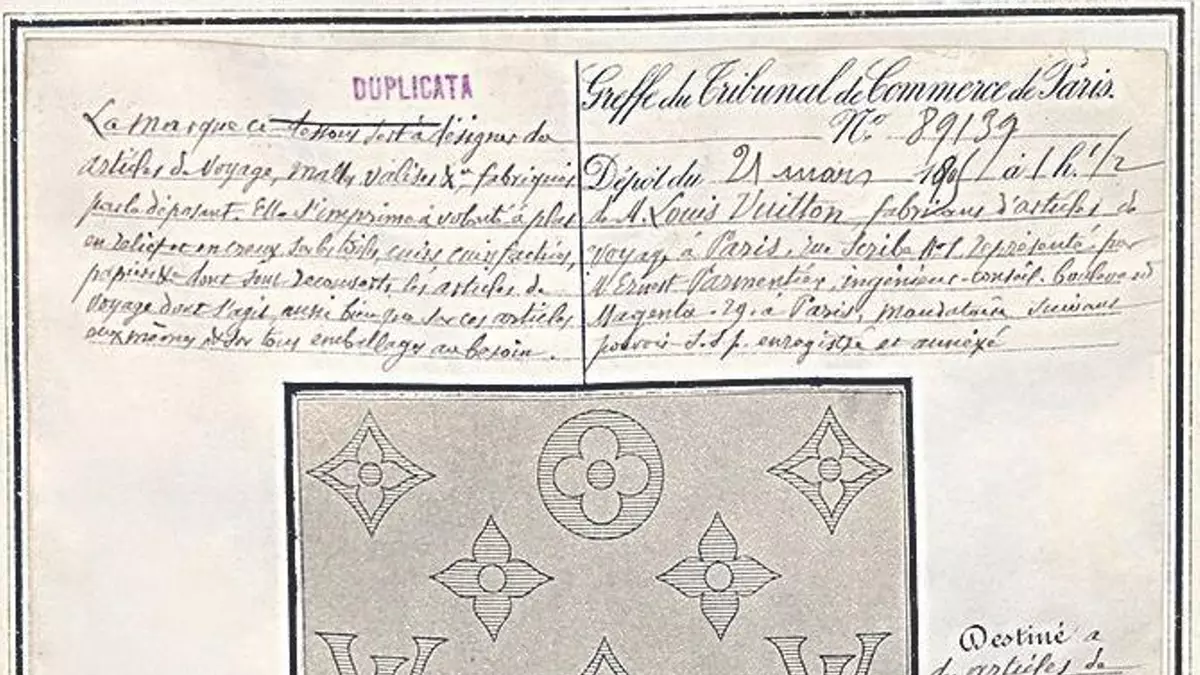 DUPLICATA
La marque ci-dessous sert à désigner des
articles de voyage, malles, valises &a fabriqués
par le déposant. Elle s'imprime à volonté à plat
en relief et en creux sur les toiles, cuirs, cuirs factices,
papiers &a dont sont recouverts les articles de
voyage dont s'agit, aussi bien que sur ces articles
eux mêmes & sur tous emballages au besoin.
Greffe du Tribunal de Commerce de Paris.
No 89139
Dépôt du 21 mars à 1 h. 1/2
de M. Louis Vuitton fabricant d'articles de
voyage à Paris, rue Scribe No 1, représenté par
M. Ernest Parmentier, ingénieur-conseil, boulevard
Magenta 29 à Paris, mandataire suivant
pouvoir s.s.p. enregistré et annexé
Destiné a
articles de